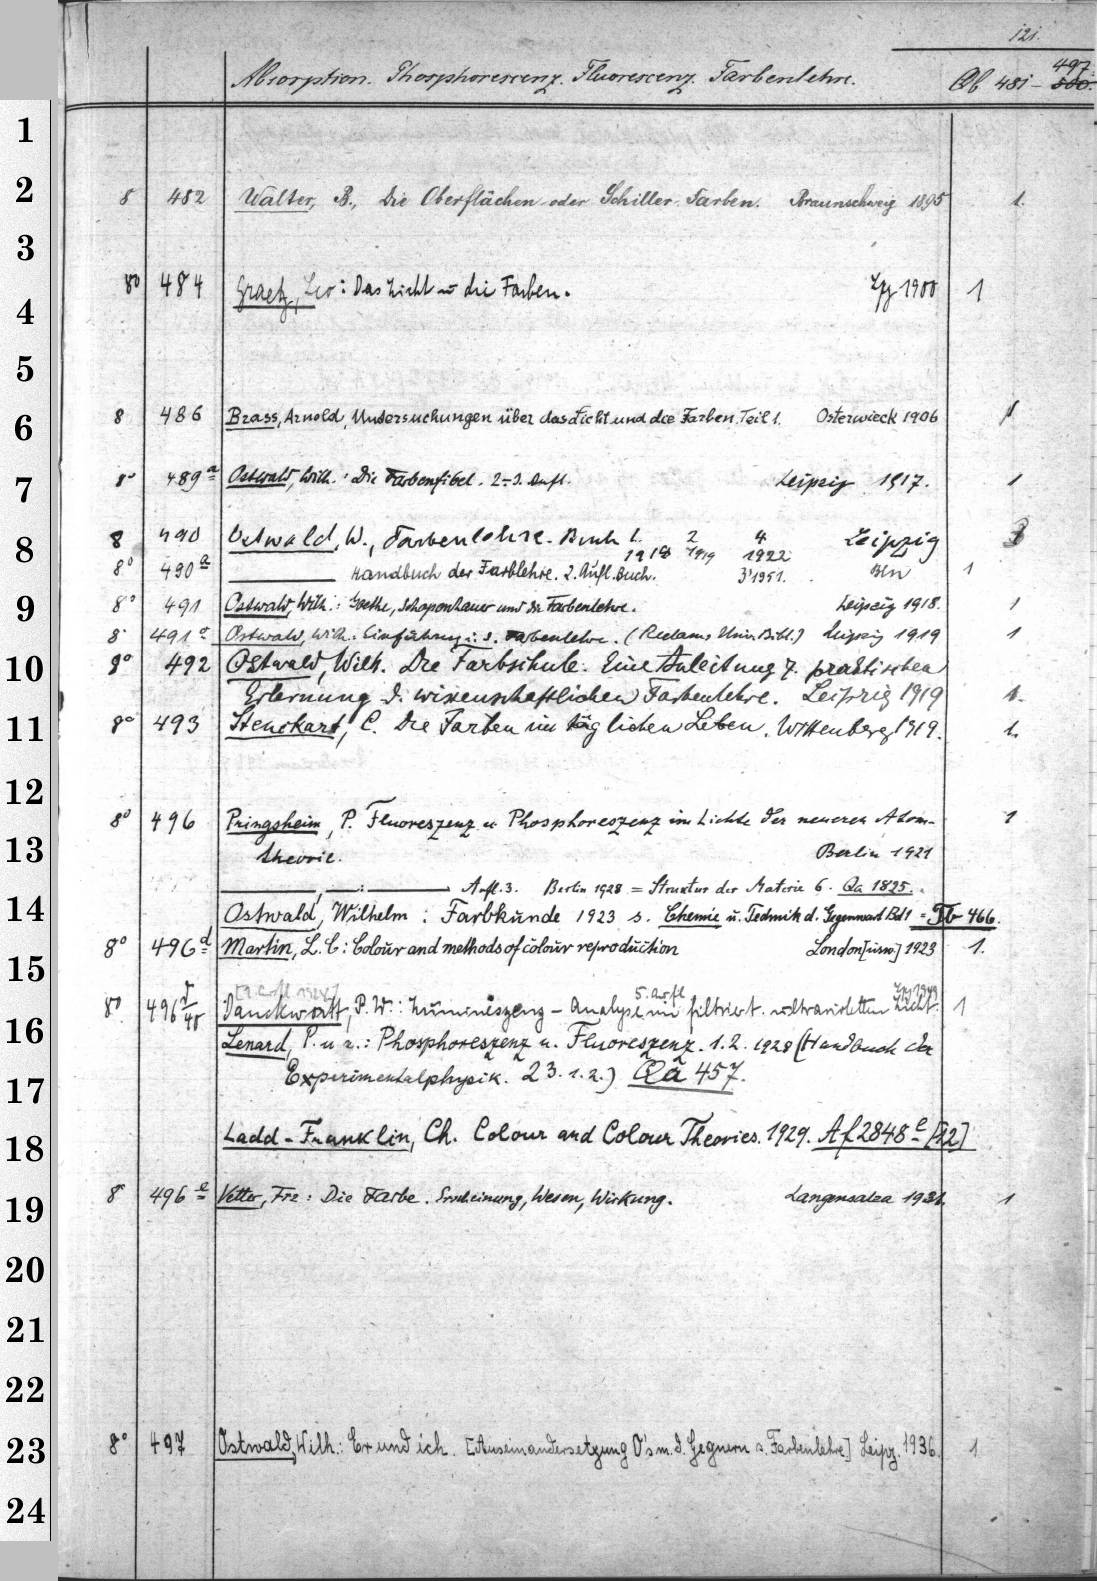 121.
Absorption. Phosphorescenz. Fluorescenz. Farbenlehre. Qb 481 - 497. 500.
1
2
8 482 Walter, B., Die Oberflächen- oder Schiller-Farben. Braunschweig 1895 1.
3
8° 484 Graetz, Leo: Das Licht u die Farben. Lpz 1900 1
4
5
8 486 Brass, Arnold, Untersuchungen über das Licht und die Farben. Teil 1. Osterwieck 1906 1
6
8° 489a Ostwald, Wilh.: Die Farbenfibel. 2-3. Aufl. Leipzig 1917. 1
7
8 490 Ostwald, W., Farbenlehre. Buch 1. 2 4 Leipzig 3
8
1918 1919 1922
8° 490a Handbuch der Farblehre. 2. Aufl. Buch. 3'1951. Bln 1
9
8° 491 Ostwald, Wilh.: Goethe, Schopenhauer und die Farbenlehre. Leipzig 1918. 1
8° 491a Ostwald, Wilh.: Einführung i. d. Farbenlehre. (Reclams Univ. Bibl.) Leipzig 1919 1
10
8° 492 Ostwald, Wilh. Die Farbschule. Eine Anleitung z. praktischen
Erlernung d. wissenschaftlichen Farbenlehre. Leipzig 1919 1.
11
8° 493 C. Die Farben im täglichen Leben. Wittenberg 1919. 1.
12
8° 496 Pringsheim, P. Fluoreszenz u Phosphoreszenz im Lichte der neueren Atom- 1
13
theorie. Berlin 1921
Aufl. 3. Berlin 1928 = Struktur der Materie 6. Qa 1825.
14
Ostwald, Wilhelm: Farbkunde 1923 s. Chemie u. Technik d. Gegenwart Bd 1 = Tb 466.
8° 496d Martin, L. C: Colour and methods of colour reproduction London [usw.] 1923 1.
15
[2. Aufl 1928] 5. Aufl Lpz 1949
8° 496 Danckwortt, P. W.: Lumineszenz-Analyse im filtriert. ultravioletten Licht. 1
16
Lenard, P. u. a.: Phosphoreszenz u. Fluoreszenz. 1. 2. 1928 (Handbuch der
17
Experimentalphysik. 23. 1. 2.) Qa 457.
18
Ladd-Franklin, Ch. Colour and Colour Theories. 1929. Af 2848 [12]
8° 496e Vetter, Frz: Die Farbe. Erscheinung, Wesen, Wirkung. Langensalza 1931. 1
19
20
21
22
8° 497 Ostwald, Wilh.: Er und ich. [Auseinandersetzung O's m. d. Gegnern s. Farbenlehre] Leipz. 1936. 1
23
24